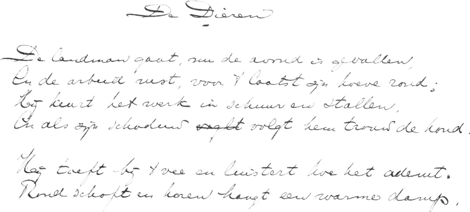 De Dieren
De landman gaat, nu de avond is gevallen,
En de arbeid rust, voor 't laatst zijn hoeve rond;
Hij keurt het werk in schuur en stallen,
En als zijn schaduw volgt hem trouw de hond.
Hij toeft bij 't vee en luistert hoe het ademt.
Rond schoft en horen hangt een warme damp,